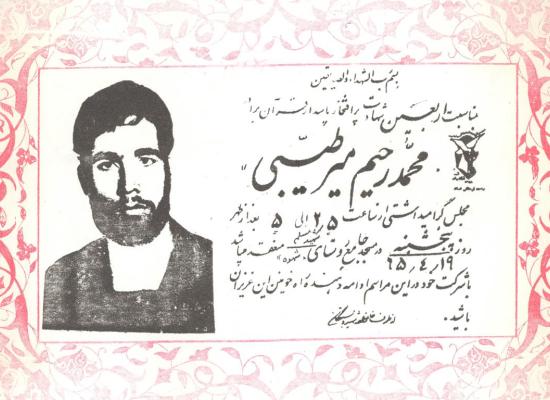 بسم رب الشهداء والصدیقین
بمناسبت اربعین شهادت پرافتخار پاسدار قرآن برادر
محمدرحیم میرطیبی
مجلس گرامیداشتی از ساعت ۲٫۵ الی ۵ بعدازظهر
روز پنجشنبه در مسجد جامع روستای «شهوه» منعقد میباشد
۱۹ ر ۴ ر ۶۵
با شرکت خود در این مراسم ادامه دهنده راه خونین این عزیزان
باشید.
از طرف خانواده شهید و بستگان